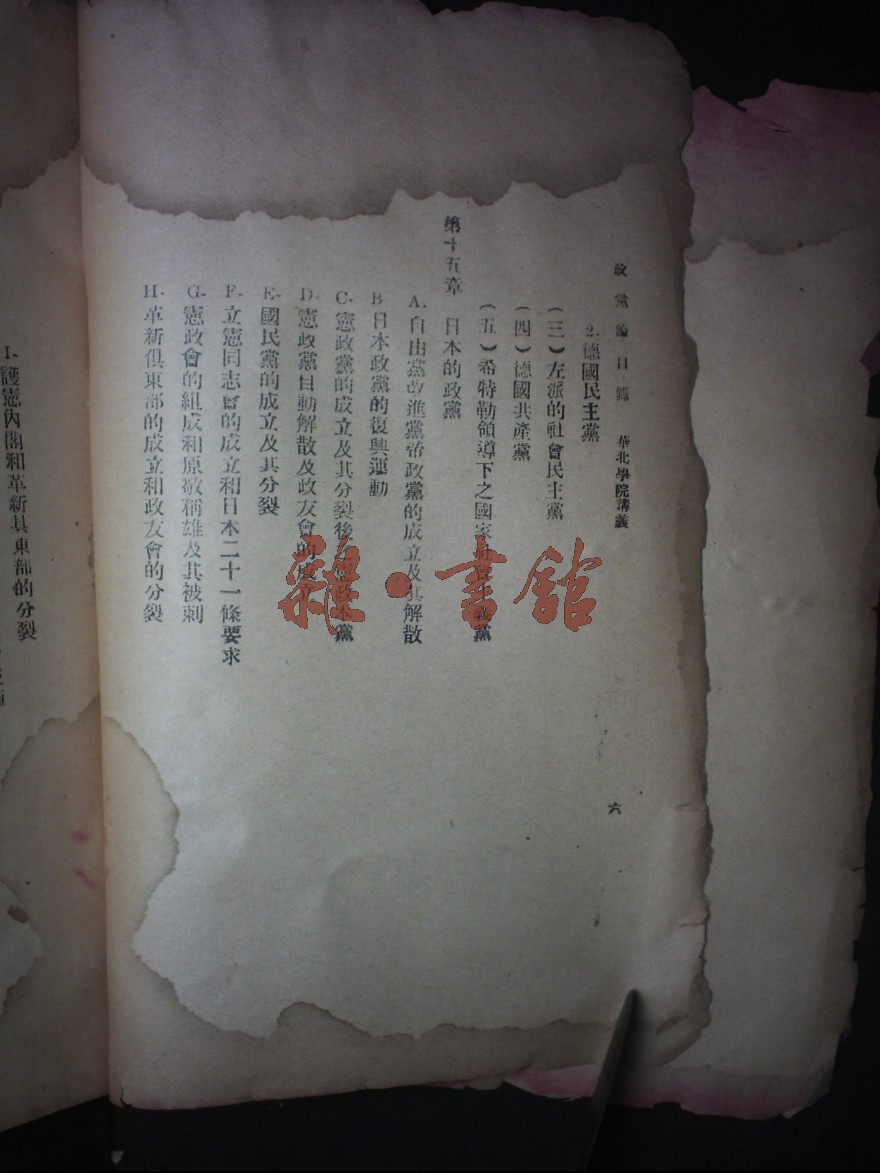 政黨論目錄 華北學院講義 六
2. 德國民主黨
(三)左派的社會民主黨
(四)德國共產黨
(五)希特勒領導下之國家社會主義黨
第十五章 日本的政黨
A. 自由黨改進黨帝政黨的成立及其解散
B 日本政黨的復興運動
C. 憲政黨的成立及其分裂後之憲政本黨
D. 憲政黨自動解散及政友會的成立
E. 國民黨的成立及其分裂
F. 立憲同志會的成立和日本二十一條要求
G. 憲政會的組成和原敬稱雄及其被刺
H. 革新俱東部的成立和政友會的分裂
I. 護憲內閣和革新具東部的分裂
雜·書館